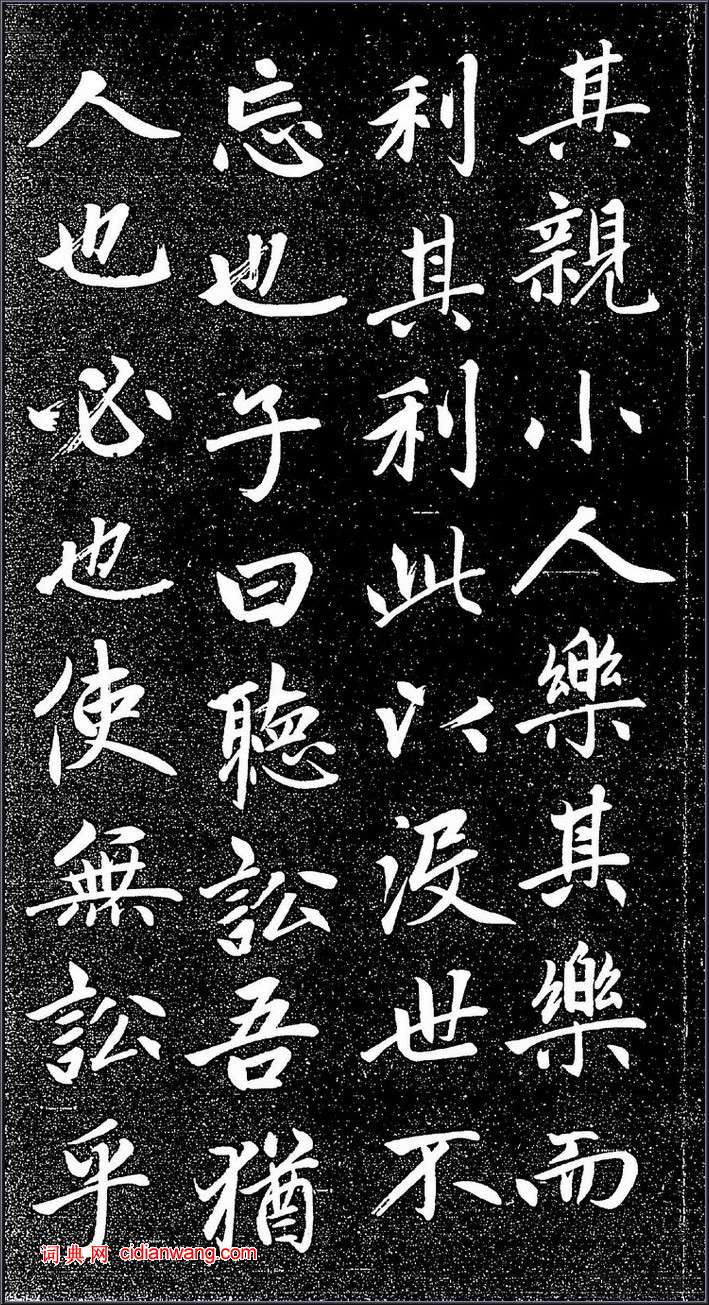 其親小人樂其樂而
利其利此以没世不
忘也子曰聽訟吾猶
人也必也使無訟乎
词典网 cidianwang.com